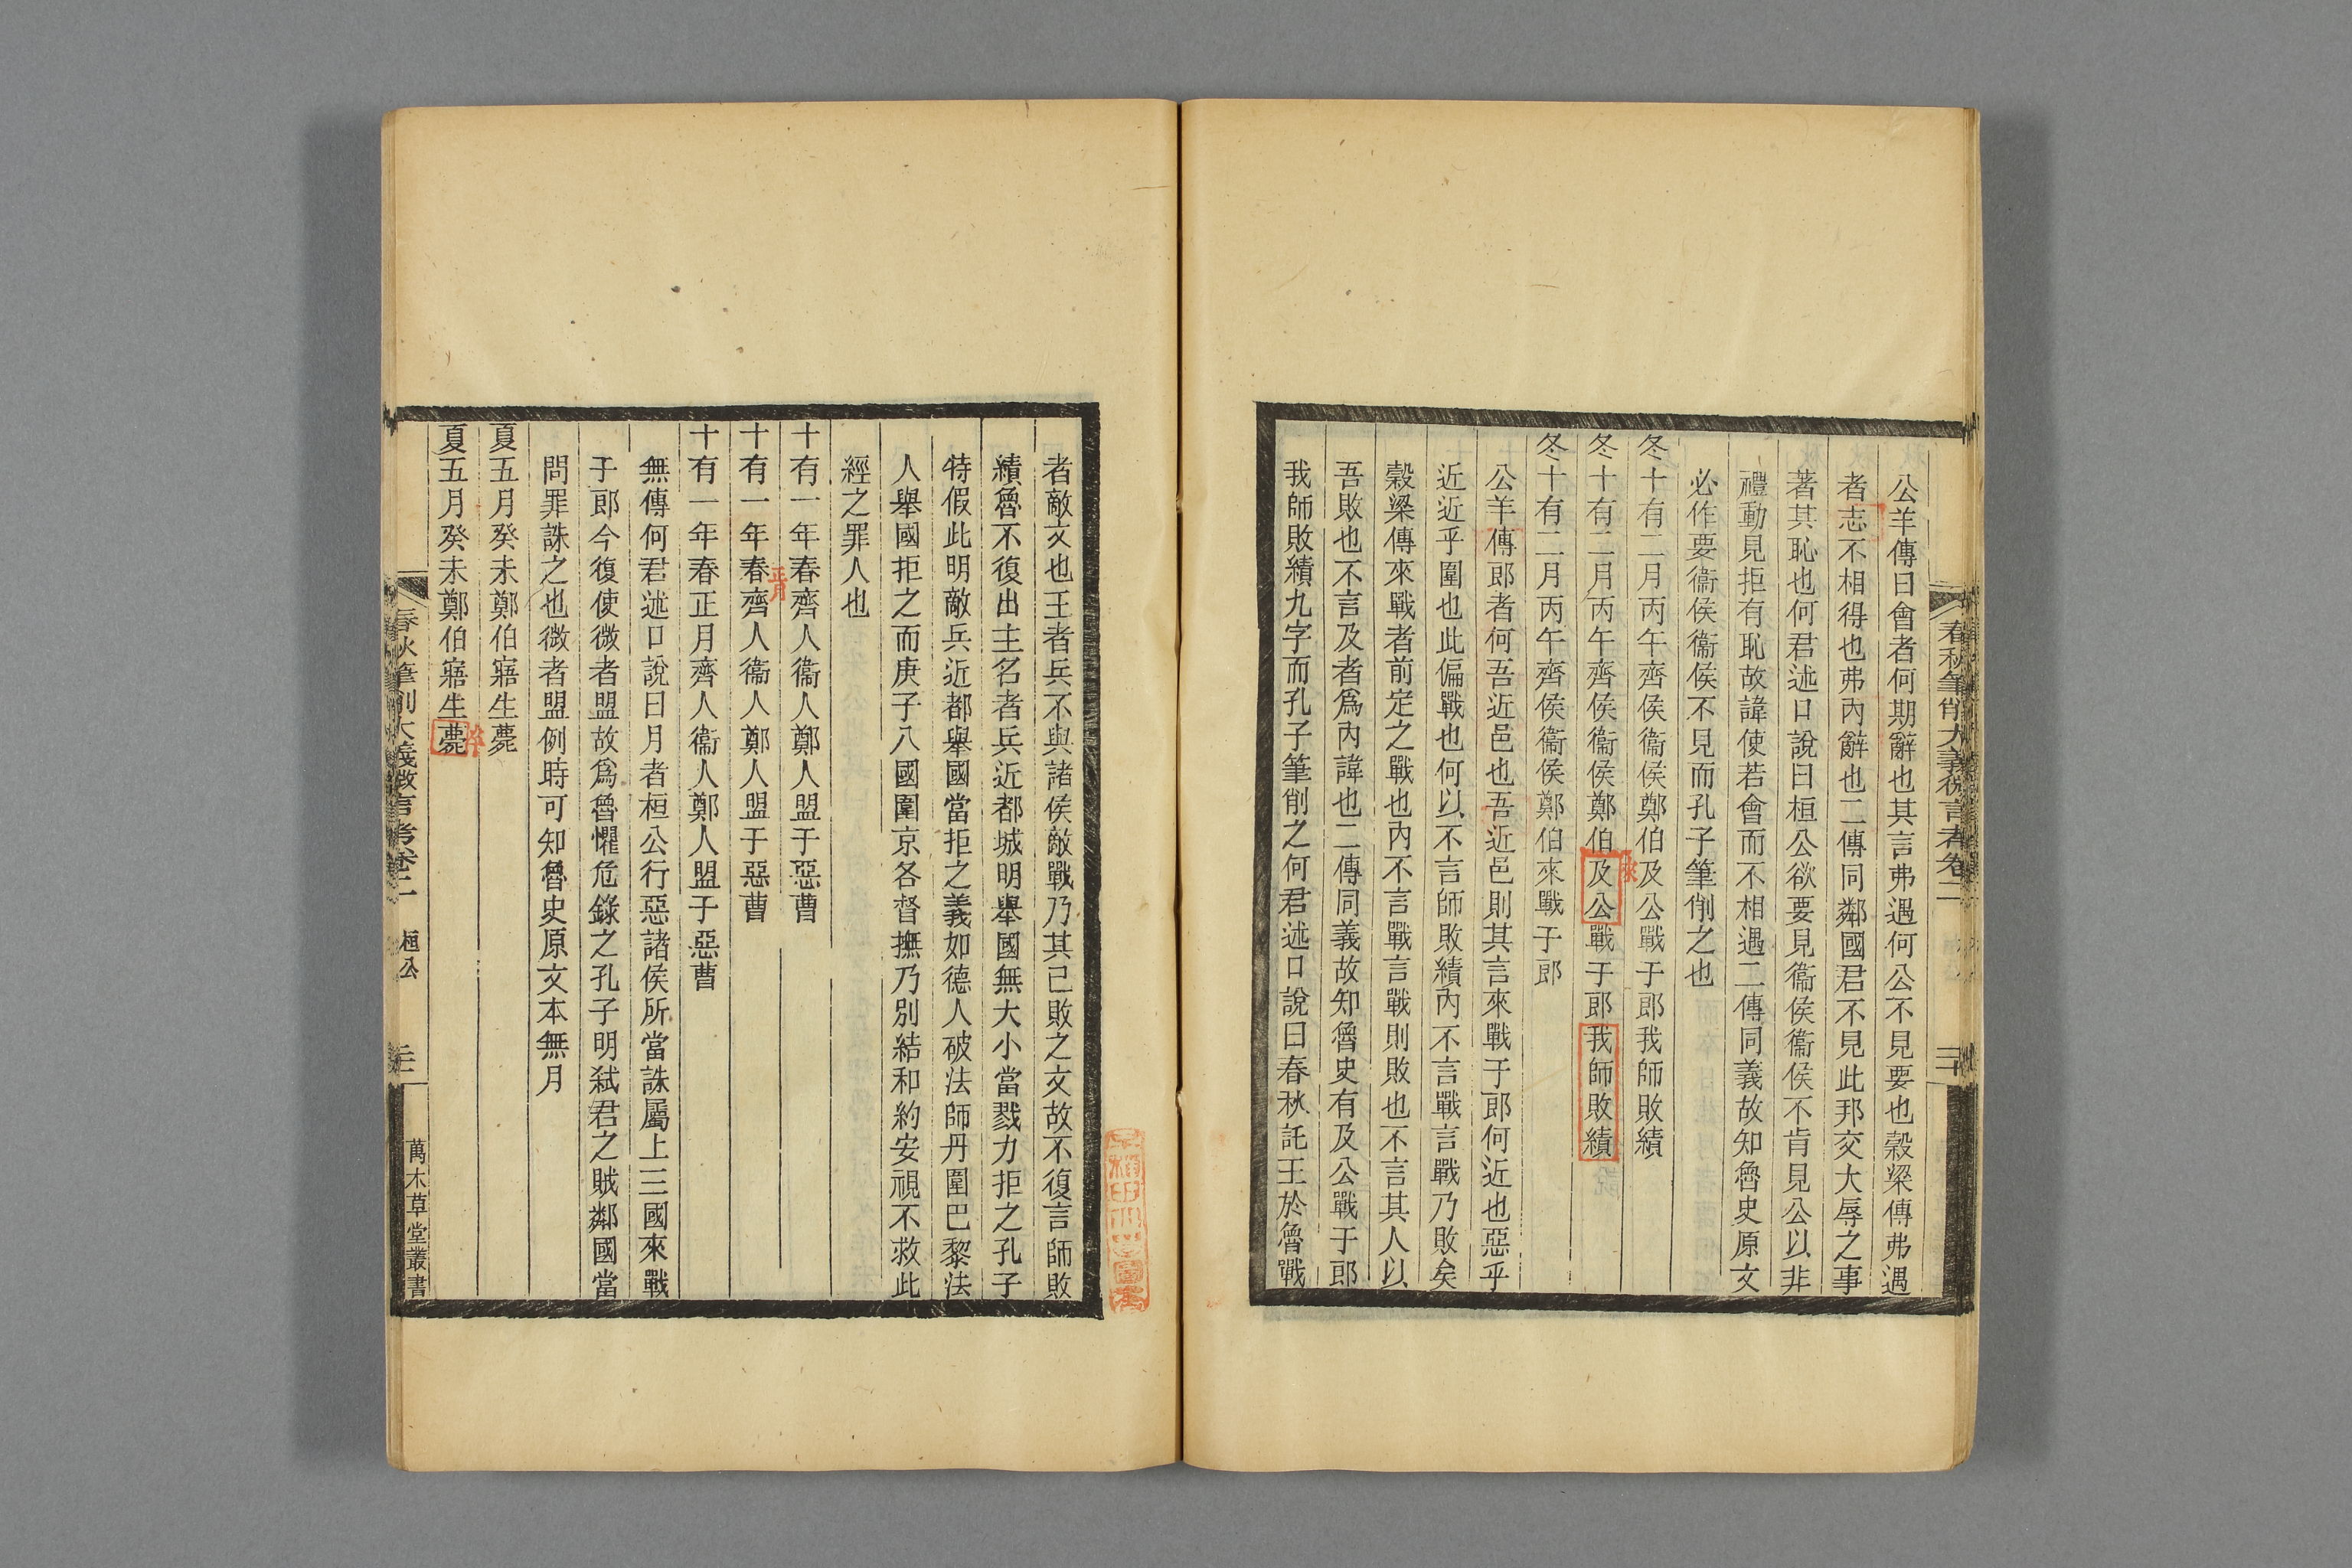 春秋筆削大義微言考卷二
公羊傳曰會者何期辭也其言弗遇何公不見要也穀梁傳弗遇
者志不相得也弗內辭也二傳同鄰國君不見此邦交大辱之事
著其恥也何君述口說曰桓公欲要見衞侯衞侯不肯見公以非
禮動見拒有恥故諱使若會而不相遇二傳同義故知魯史原文
必作要衞侯衞侯不見而孔子筆削之也
冬十有二月丙午齊侯衞侯鄭伯及公戰于郎我師敗績
來
冬十有二月丙午齊侯衞侯鄭伯及公戰于郎我師敗績
冬十有二月丙午齊侯衞侯鄭伯來戰于郎
公羊傳郎者何吾近邑也吾近邑則其言來戰于郎何近也惡乎
近近乎圍也此偏戰也何以不言師敗績內不言戰言戰乃敗矣
穀梁傳來戰者前定之戰也內不言戰言戰則敗也不言其人以
吾敗也不言及者爲內諱也二傳同義故知魯史有及公戰于郎
我師敗績九字而孔子筆削之何君述口說曰春秋託王於魯戰
者敵文也王者兵不與諸侯敵戰乃其已敗之文故不復言師敗
績魯不復出主名者兵近都城明舉國無大小當戮力拒之孔子
特假此明敵兵近都舉國當拒之義如德人破法師丹圍巴黎法
人舉國拒之而庚子八國圍京各督撫乃別結和約安視不救此
經之罪人也
十有一年春齊人衞人鄭人盟于惡曹
正月
十有一年春齊人衞人鄭人盟于惡曹
十有一年春正月齊人衞人鄭人盟于惡曹
無傳何君述口說曰月者桓公行惡諸侯所當誅屬上三國來戰
于郎今復使微者盟故爲魯懼危錄之孔子明弒君之賊鄰國當
問罪誅之也微者盟例時可知魯史原文本無月
夏五月癸未鄭伯寤生薨
卒
夏五月癸未鄭伯寤生薨
春秋筆削大義微言考卷二 桓公 三 萬木草堂叢書